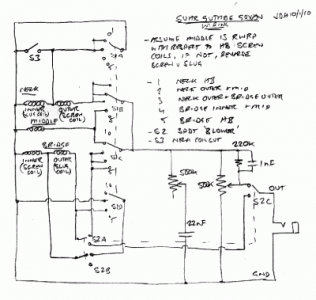 SUHR GUTHRIE GOVAN
WIRING
JDH 10/1/10
- ASSUME MIDDLE IS RWRP
WITH RESPECT TO HB SCREW
COILS, IF NOT, REVERSE
SCREW + SLUG
- 1 NECK HB
2 NECK OUTER + MID
3 NECK OUTER + BRIDGE OUTER
4 BRIDGE INNER + MID
5 BRIDGE HB
- S2 3PDT 'BLOWER'
- S3 NECK COILCUT
S3
S1A
NECK
INNER
(SLUG COIL)
OUTER
(SCREW
COIL)
MIDDLE
S1B
BRIDGE
INNER
(SCREW
COIL)
OUTER
(SLUG
COIL)
S1C
S1D
220K
1nF
500K
500K
OUT
S2C
22nF
S2A
S2B
GND